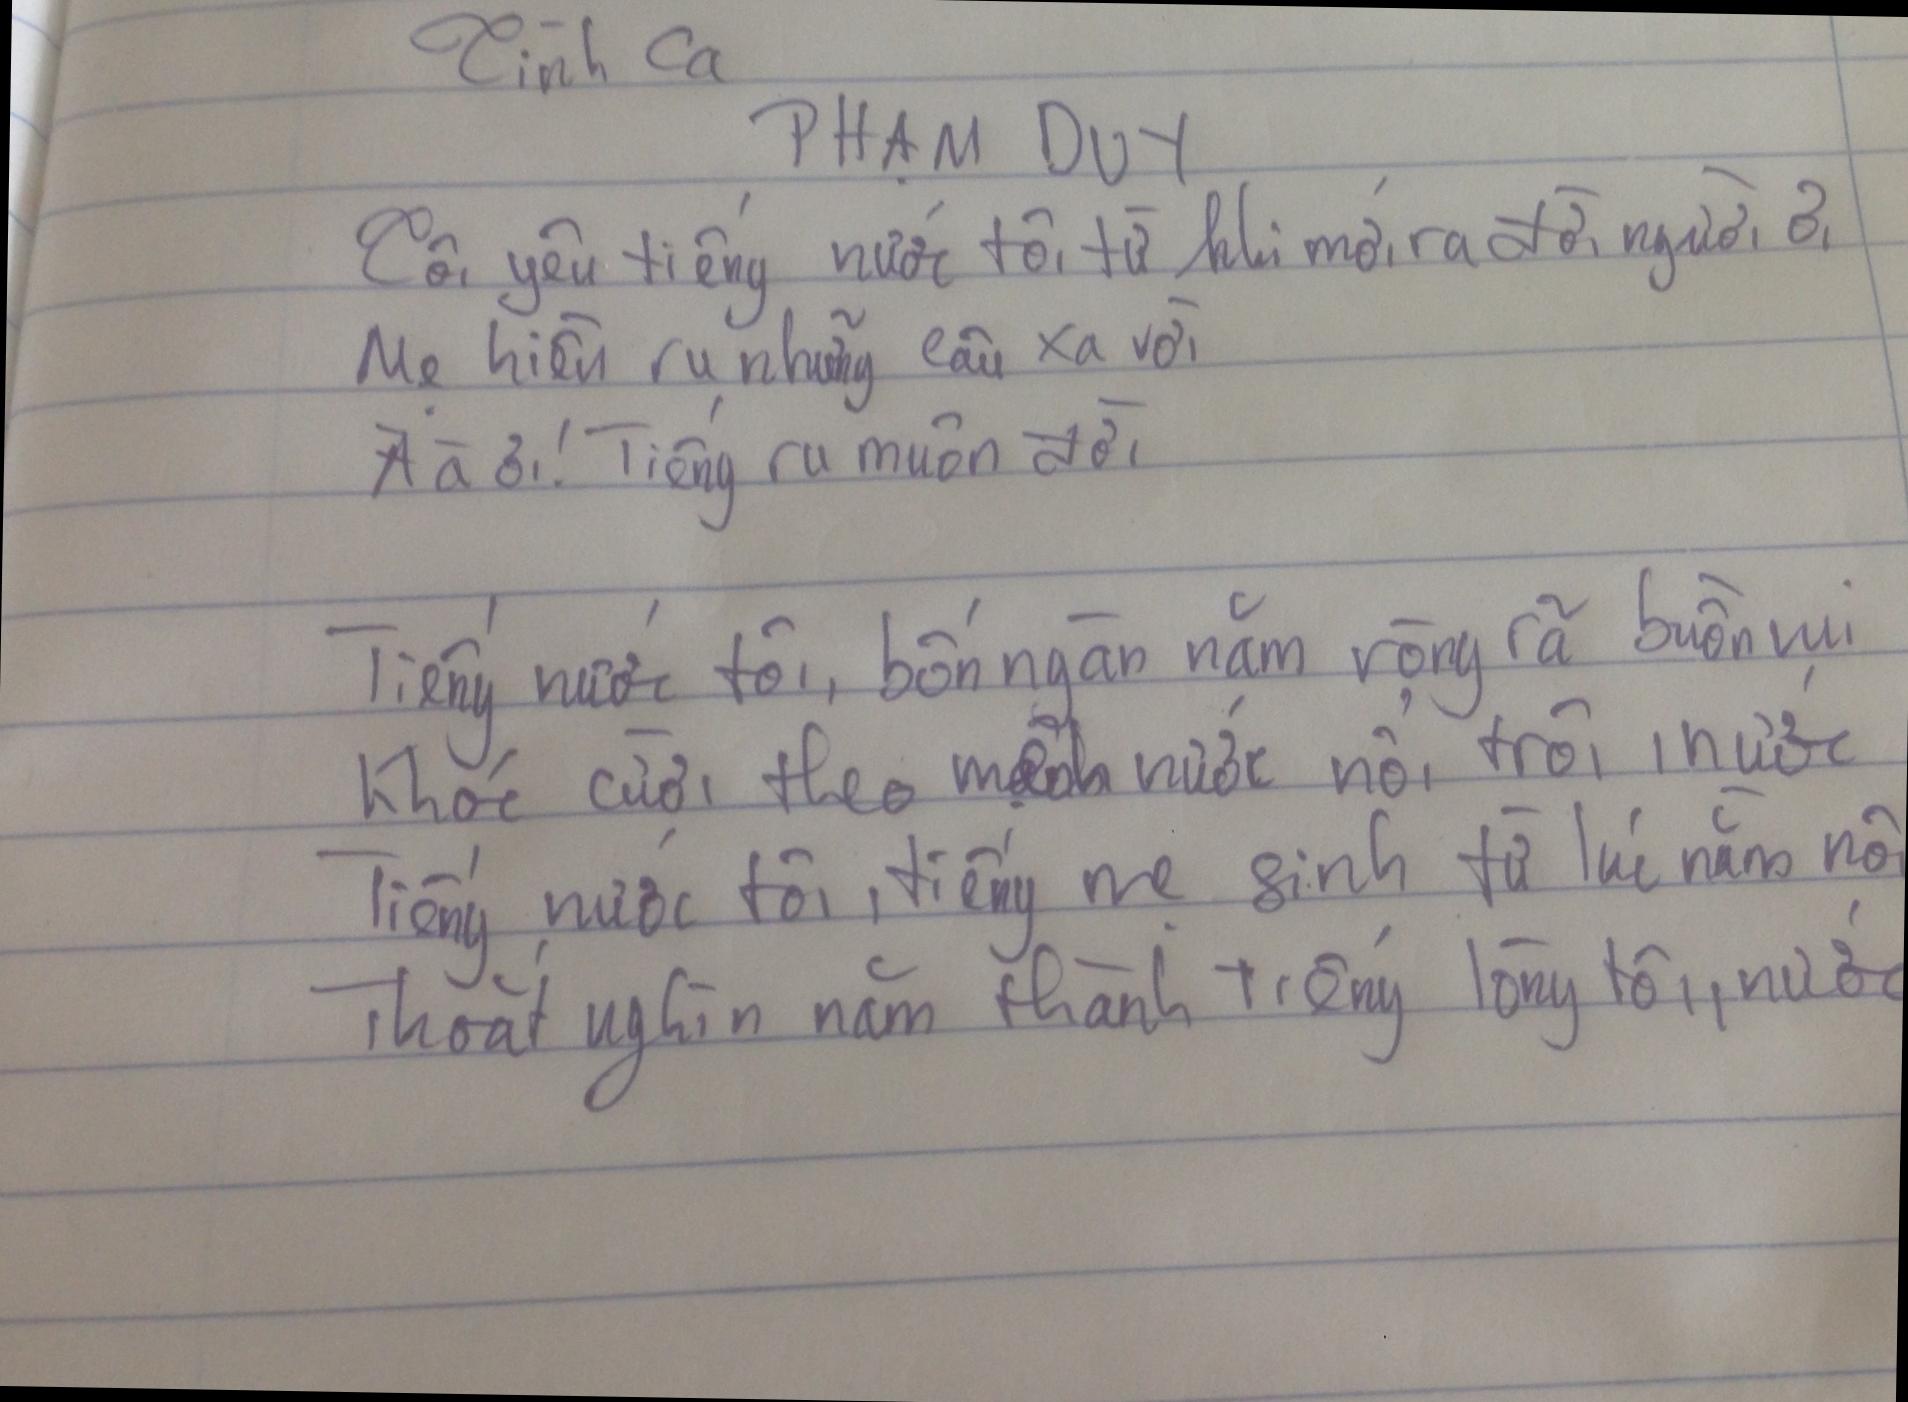 Tình Ca
PHẠM DUY
Tôi yêu tiếng nước tôi từ khi mới ra đời, người ơi
Mẹ hiền ru những câu xa vời
À à ơi! Tiếng ru muôn đời
Tiếng nước tôi, bốn ngàn năm ròng rã buồn vui
Khóc cười theo mệnh nước nổi trôi, nước
Tiếng nước tôi, tiếng mẹ sinh từ lúc nằm nôi
Thoắt nghìn năm thành tiếng lòng tôi, nước